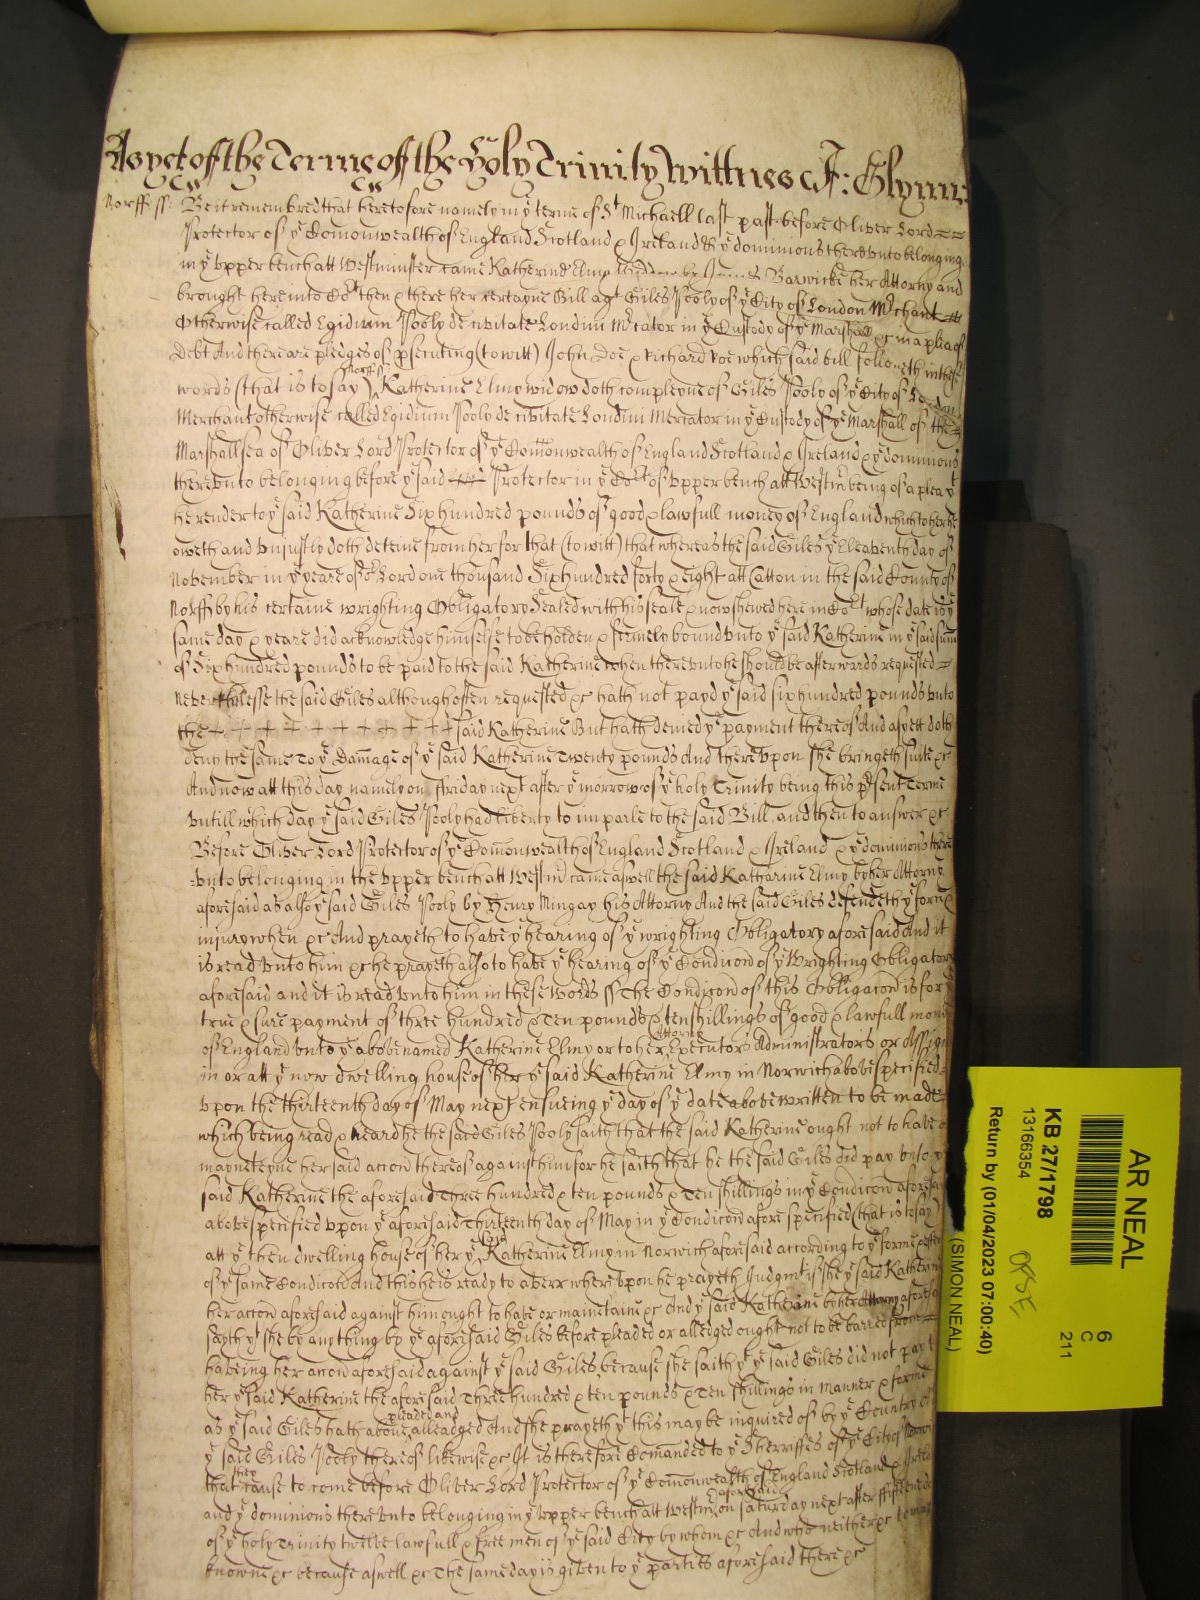 As yet of the Terme of the Holy Trinity Wittnes J: Glynn:
Norff ss: Be it remembred that heretofore namely in yᵉ terme of Sᵗ Michaell last past before Oliver Lord
Protector of yᵉ Comonwealth of England Scotland & Ireland & yᵉ dominions there vnto belonging
in yᵉ vpper bench att Westminster came Katherine Elmy widdow by Barwicke her Attorny and
brought here into Coᵗ then & there her certayne Bill agᵗ Giles Pooly of yᵉ City of London Mᵉrchant
Otherwise called Egidium Pooly de civitate London Mᵉcator in yᵉ Custody of yᵉ Marshall &c in a plea of
debt And there are pledges of psecuting (to witt) John Doe & Richard Roe which said bill followeth in these
words (that is to say) Norff ss Katherine Elmy widow doth compleyne of Giles Pooly of yᵉ City of London
Merchant otherwise called Egidium Pooly de civitate Londini Mercator in yᵉ Custody of yᵉ Marshall of the
Marshallsea of Oliver Lord Protector of yᵉ Comonwealth of England Scotland & Ireland & yᵉ dominions
there vnto belonging before yᵉ said Protector in yᵉ Coᵗ of vpper bench att Westmᵉ being of a plea yᵗ
he render to yᵉ said Katherine Six hundred pounds of good & lawfull money of England which to her he
oweth and vniustly doth deteine from her for that (to witt) that whereas the said Giles yᵉ Eleaventh day of
November in yᵉ yeare of oʳ Lord one thousand Six hundred forty & eight att Catton in the said County of
Norff by his certaine wrighting Obligatory Sealed with his seale & now shewed here in Coᵗ whose date is yᵉ
same day & yeare did acknowledge himselfe to be holden & firmely bound vnto yᵉ said Katherine in yᵉ said sum
of Six hundred pounds to be paid to the said Katherine when there vnto he should be afterwards requested
neverthelesse the said Giles although often requested &c hath not payd yᵉ said six hundred pounds vnto
the + + + + + + + + + said Katherine But hath denied yᵉ payment thereof And as yett doth
deny the same To yᵉ Damage of yᵉ said Katherine Twenty pounds And there vpon she bringeth suite &c
And now att this day namely on Friday next after yᵉ morrow of yᵉ holy Trinity being this pᵉsent Terme
vntill which day yᵉ said Giles Pooly had liberty to imparle to the said Bill, and then to answer &c
Before Oliver Lord Protector of yᵉ Comonwealth of England Scotland & Ireland & yᵉ dominions there
vnto belonging in the vpper bench att Westmᵉ came aswell the said Katharine Elmy by her Attorny
aforesaid as also yᵉ said Giles Pooly by Henry Mingay his Attorny And the said Giles defendeth yᵉ force &
iniury when &c And prayeth to have yᵉ hearing of yᵉ wrighting Obligatory aforesaid And it
is read vnto him &c he prayeth also to have yᵉ hearing of yᵉ Condicon of yᵉ Wrighting Obligatory
aforesaid and it is read vnto him in these words ss The Condicon of this Obligacon is for yᵉ
true & sure payment of three hundred & Ten pounds & ten shillings of good & lawfull mony
of England vnto yᵉ above named Katherine Elmy or to her Attorney Executors Administrators or Assigns
in or att yᵉ now dwelling house of her yᵉ said Katherine Elmy in Norwich above specified
vpon the thirteenth day of May next ensueing yᵉ day of yᵉ date above written to be made
which being read & heard he the said Giles Pooly saith that the said Katherine ought not to have o
mayneteyne her said accon thereof against him for he saith that he the said Giles did pay vnto yᵉ
said Katherine the aforesaid Three hundred & ten pounds & Ten shillings in yᵉ Condicon aforesay
above specified vpon yᵉ aforesaid Thirteenth day of May in yᵉ Condicon afore specified (that is to say)
att yᵉ then dwelling house of her yᵉ said Katherine Elmy in Norwich aforesaid according to yᵉ forme & effect
of yᵉ same Condicon And this he is ready to averr where vpon he prayeth Judgmᵗ if she yᵉ said Katherine
her accon aforesaid against him ought to have or maintaine &c And yᵉ said Katherine by her Attorny aforesa
sayth yᵗ she by any thing by yᵉ aforesaid Giles before pleaded or alledged ought not to be barred from
haveing her accon aforesaid against yᵉ said Giles, because she saith yᵗ yᵉ said Giles did not pay t
her yᵉ said Katherine the aforesaid Three hundred & ten pounds & Ten shillings in manner & forme
as yᵉ said Giles hath above pleaded and alleadged And she prayeth yᵗ this may be inquired of by yᵉ Country
yᵉ said Giles Pooly thereof likewise &c It is therefore Comanded to yᵉ Sherriffes of yᵉ City of
that they cause to come before Oliver Lord Protector of yᵉ Comonwealth of England Scotland & Irela
and yᵉ dominions there vnto belonging in yᵉ vpper bench att Westmᵉ aforesaid on Saturday next after
of yᵉ holy Trinity twelve lawfull & free men of yᵉ said City by whom &c And who neither &c
knowne &c because aswell &c The same day is given to yᵉ parties aforesaid there &c
AR NEAL
6
C
211
KB 27/1798
13166354
OPSE
(SIMON NEAL)
Return by (01/04/2023 07:00:40)